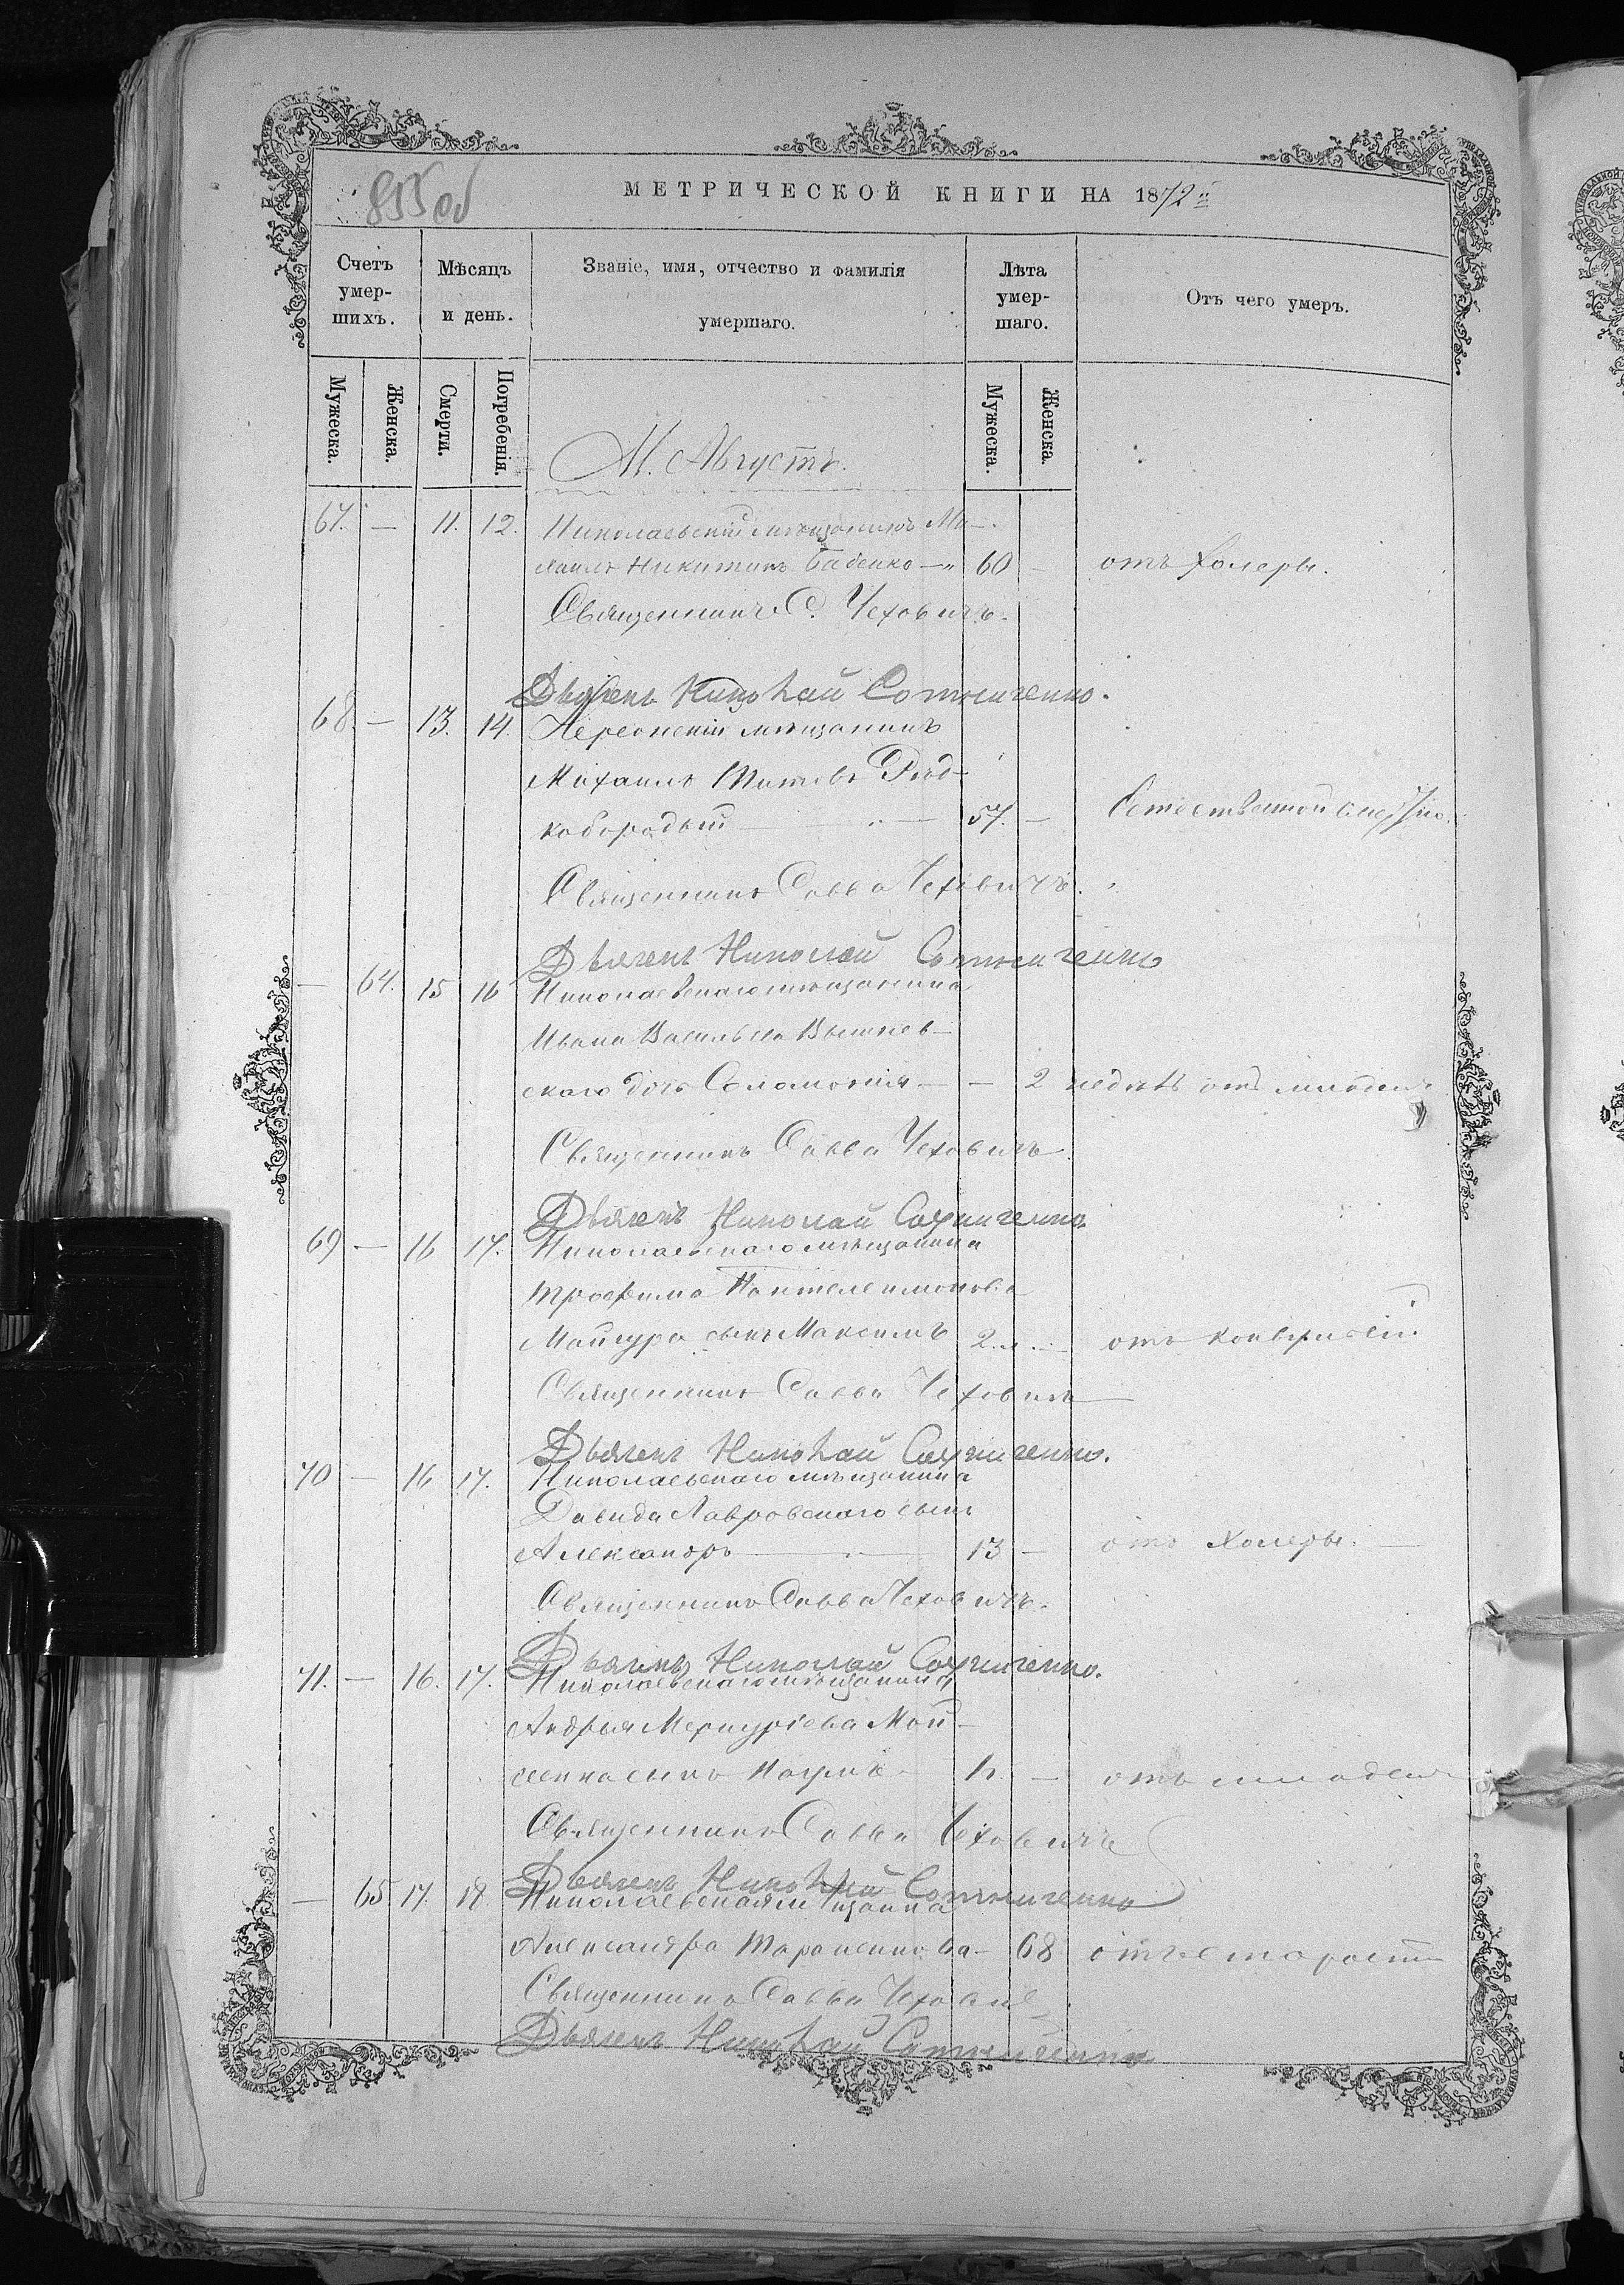 855 об
МЕТРИЧЕСКОЙ КНИГИ НА 1872й
Счетъ умер-шихъ. Мѣсяцъ и день. Званіе, имя, отчество и фамилія умершаго. Лѣта умер-шаго. Отъ чего умеръ.
Мужеска. Женска. Смерти. Погребенія. Мужеска. Женска.
М. Августъ.
67. — 11. 12. Николаевскій мѣщанинъ Ми-
хаилъ Никитинъ Бабенко — 60 — отъ холеры.
Священникъ С. Чеховичъ.
Дьячекъ Николай Сотниченко.
68. — 13. 14. Херсонскій мѣщанинъ
Михаилъ Титовъ Рѣд-
кобородый — 57. — Естественной смертію.
Священникъ Савва Чеховичъ.
Дьячекъ Николай Сотниченко
— 64. 15 16 Николаевскаго мѣщанина
Ивана Васильева Вышнев-
скаго дочь Соломонія — — 2 недѣль отъ младен.
Священникъ Савва Чеховичъ.
Дьячекъ Николай Сотниченко
69 — 16 17. Николаевскаго мѣщанина
Трофима Пантелеимонова
сынъ Максимъ 2. — отъ конвульсій.
Священникъ Савва Чеховичъ
Дьячекъ Николай Сотниченко.
70 — 16 17. Николаевскаго мѣщанина
Давида Лавровскаго сынъ
Александръ — 13 — отъ холеры.
Священникъ Савва Чеховичъ.
Дьячекъ Николай Сотниченко.
71. — 16. 17. Николаевскаго мѣщанина
Андрея Меркуріева Мой-
сынъ — отъ младен
Священникъ Савва Чеховичъ
Дьячекъ Николай Сотниченко
— 65 17. 18 Николаевская мѣщанка
Александра Тараненкова — 68 отъ старости
Священникъ Савва Чеховичъ
Дьячекъ Николай Сотниченко